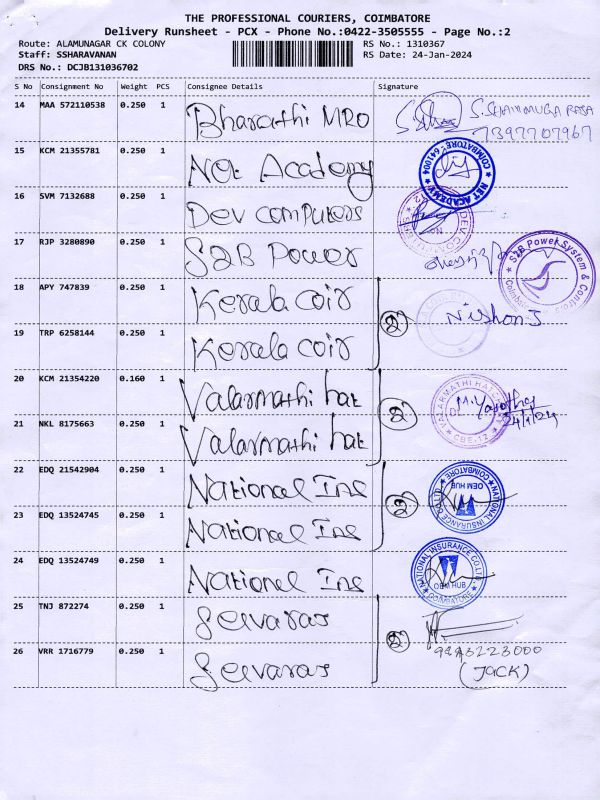 THE PROFESSIONAL COURIERS, COIMBATORE
Delivery Runsheet - PCX - Phone No.:0422-3505555 - Page No.:2
Route: ALAMUNAGAR CK COLONY RS No.: 1310367
Staff: SSHARAVANAN RS Date: 24-Jan-2024
DRS No.: DCJB131036702
S No Consignment No Weight PCS Consignee Details Signature
14 MAA 572110538 0.250 1 Bharathi MRO S.SHANMUGA RAJA
7397707967
15 KCM 21355781 0.250 1 Net Academy NET ACADEMY COIMBATORE - 641004
16 SVM 7132688 0.250 1 Dev computers DEV
17 RJP 3280890 0.250 1 S2B Power S2B Power System & Control
18 APY 747839 0.250 1 Kerala coir
2 Nishon J
19 TRP 6258144 0.250 1 Kerala coir
20 KCM 21354220 0.160 1 Valarmathi hat
2 VALARMATHI CBE-12 24/1/24
21 NKL 8175663 0.250 1 Valarmathi hat
22 EDQ 21542904 0.250 1 National Ins
2 NATIONAL INSURANCE CO LTD OEM HUB COIMBATORE
23 EDQ 13524745 0.250 1 National Ins
24 EDQ 13524749 0.250 1 National Ins NATIONAL INSURANCE CO LTD OEM HUB COIMBATORE
25 TNJ 872274 0.250 1 Selvaras
2
26 VRR 1716779 0.250 1 Selvaras
(JACK)